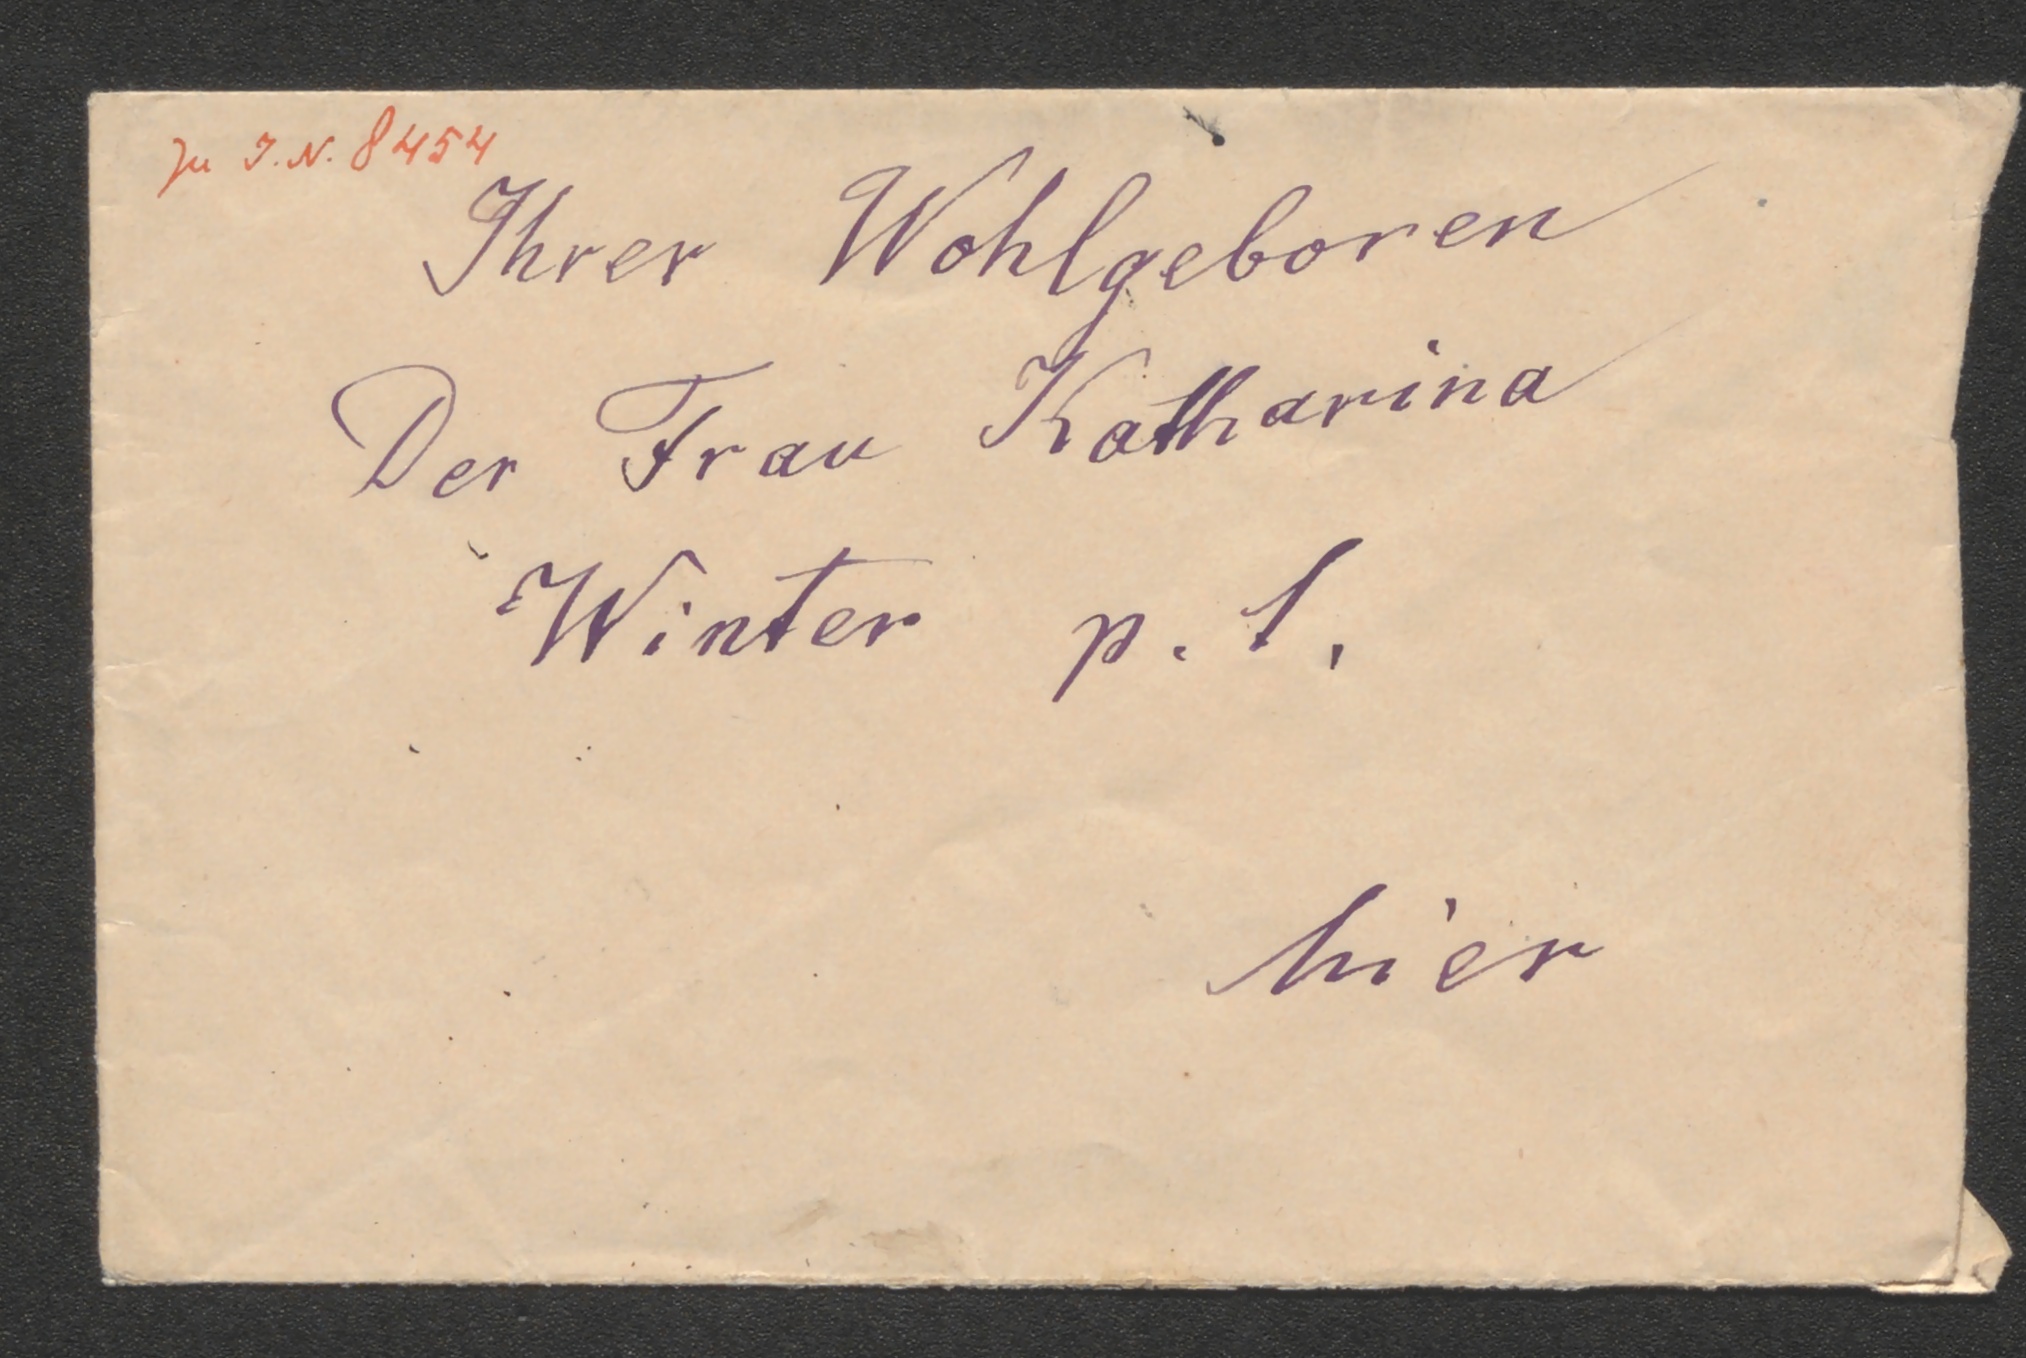 Zu I.N. 8454
Ihrer Wohlgeboren
Der Frau Katharina
Winter p. t.
hier